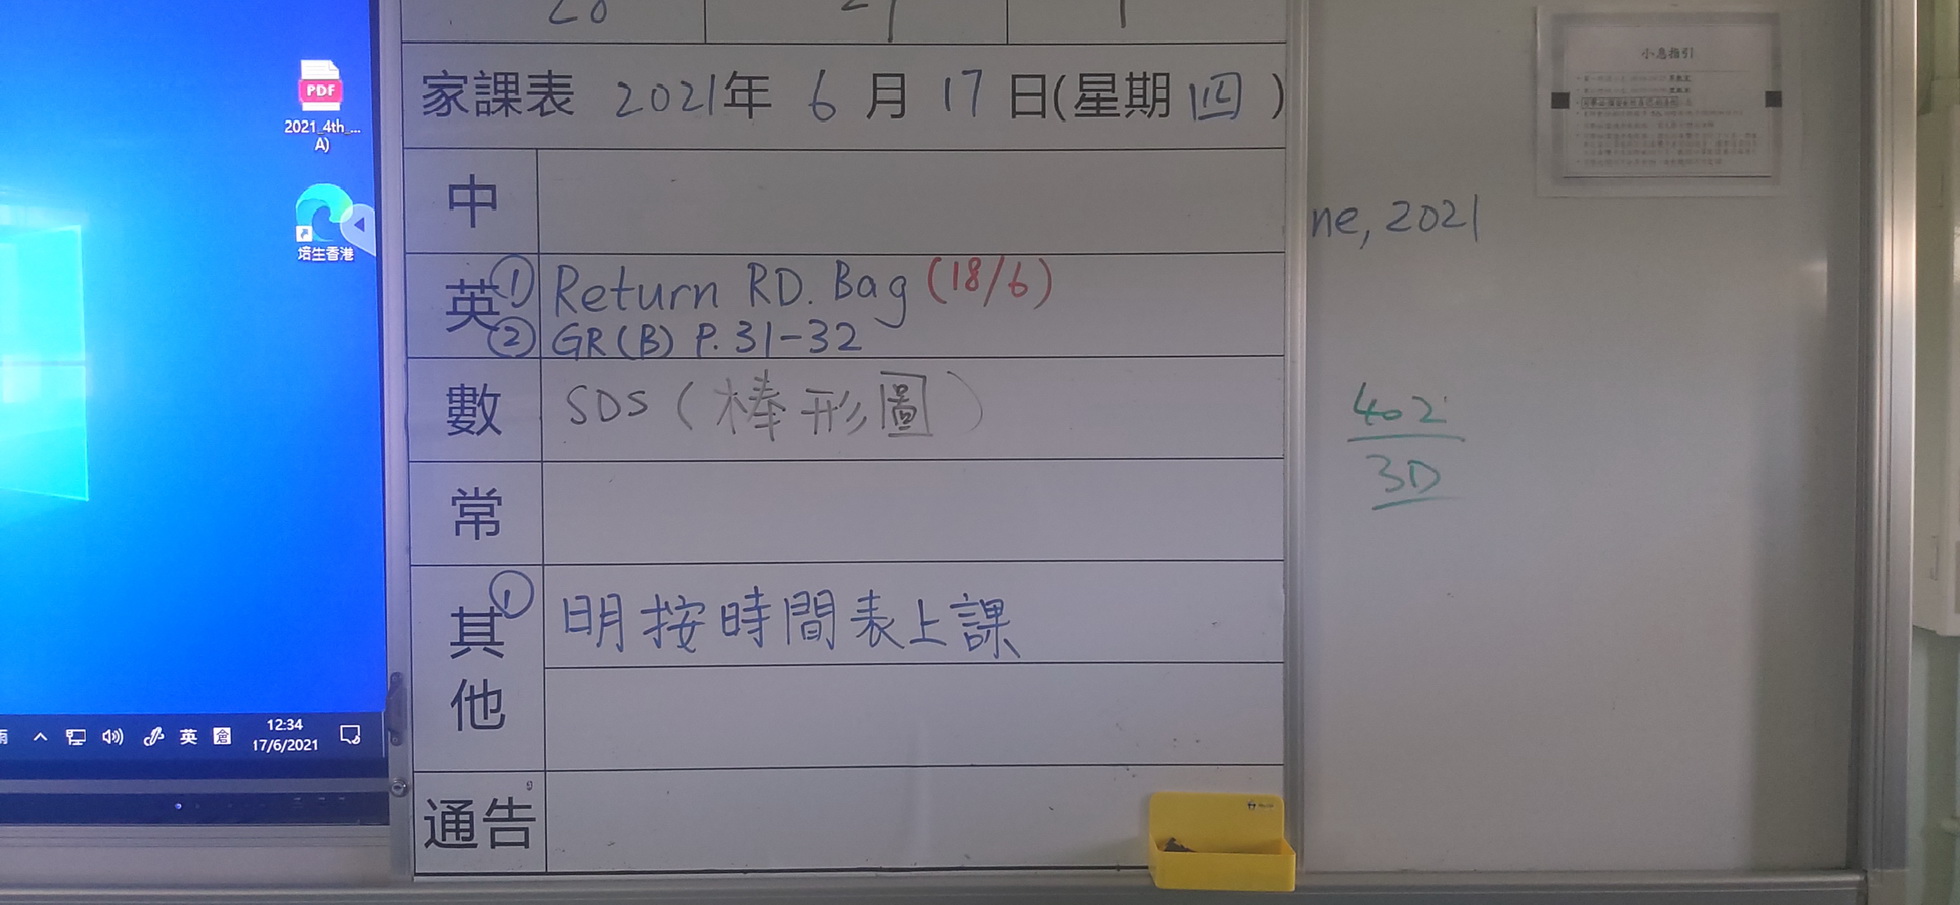 家課表 2021年 6 月 17 日(星期 四 )
中
英 ① Return RD. Bag (18/6)
② GR(B) P. 31-32
數 SDS (棒形圖)
常
其他 ① 明按時間表上課
通告
PDF
2021_4th_...
A)
培生香港
英 倉
12:34
17/6/2021
小息指引
ne, 2021
402
3D